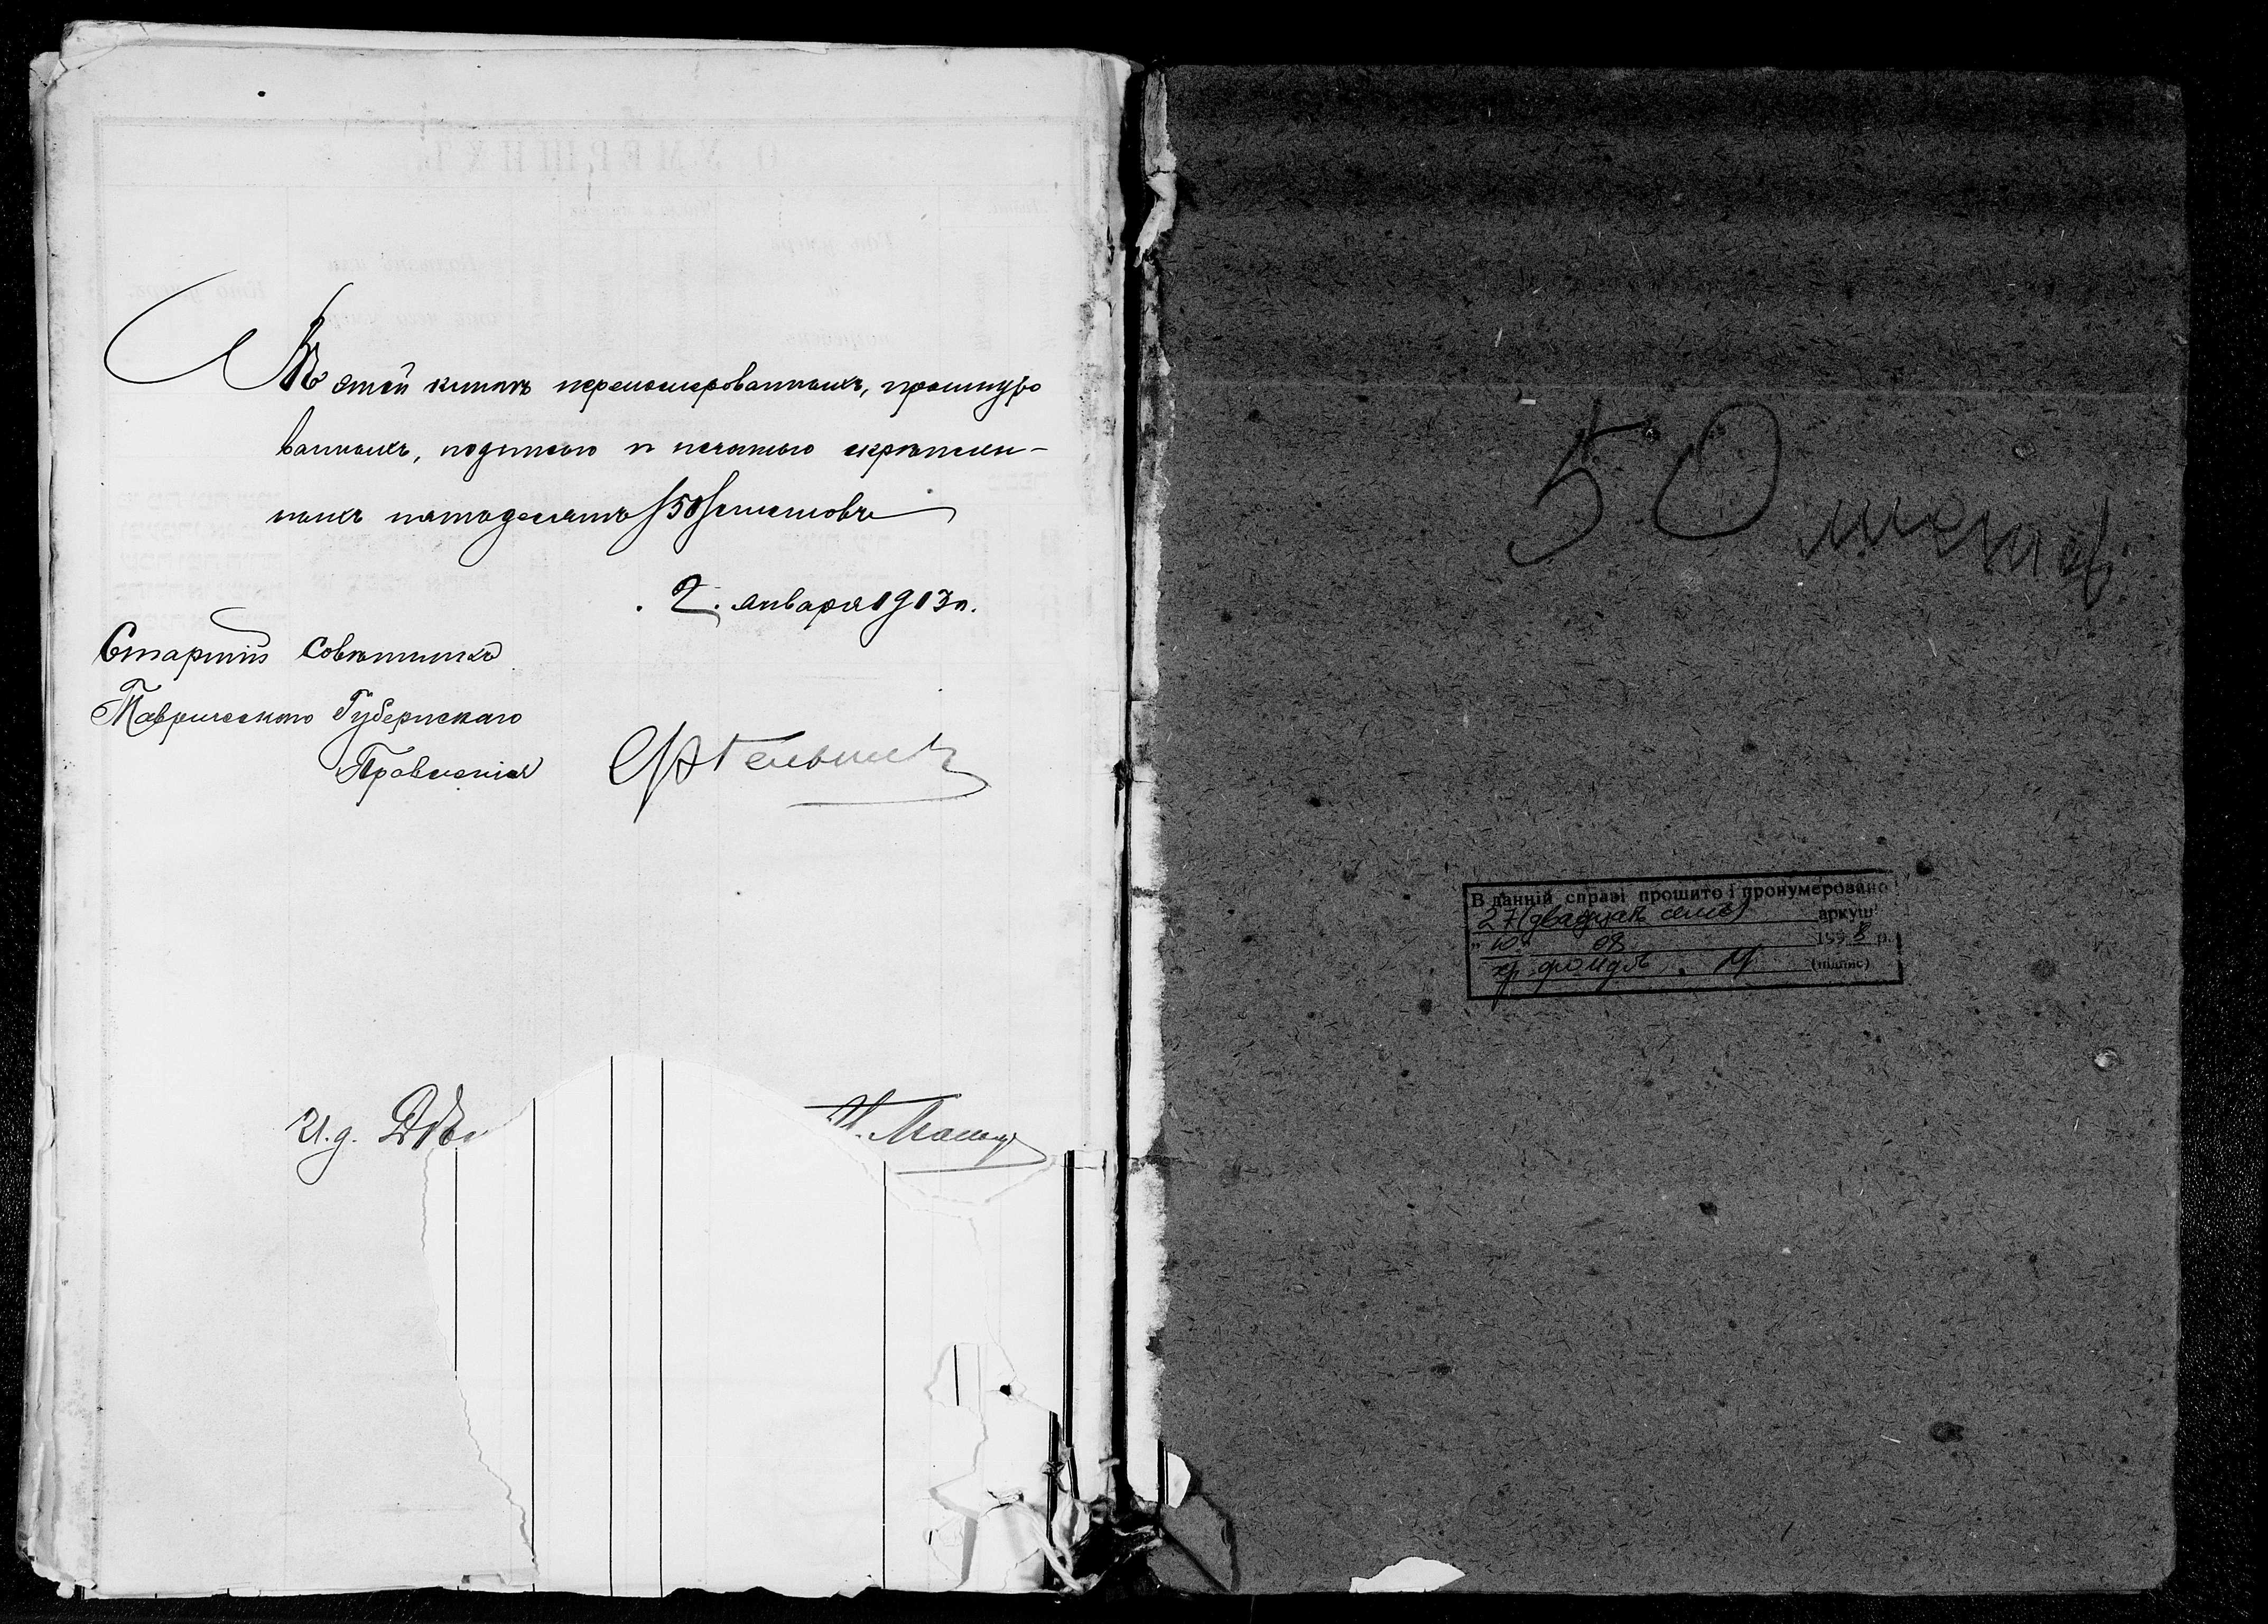 Въ этой книгѣ перенумерованныхъ, прошнуро
ванныхъ, подписью и печатью скрѣплен-
ныхъ пятьдесятъ /50/ листовъ
2. января 1913 г.
Старшій Совѣтникъ
Таврическаго Губернскаго
Правленія
И.д. Дѣл
50 листов
В данній справі прошито і пронумеровано
27 (двадцать семь) аркуш
"10" 09 1998 р.
хр. фондов (підпис)
О УМЕРШИХЪ